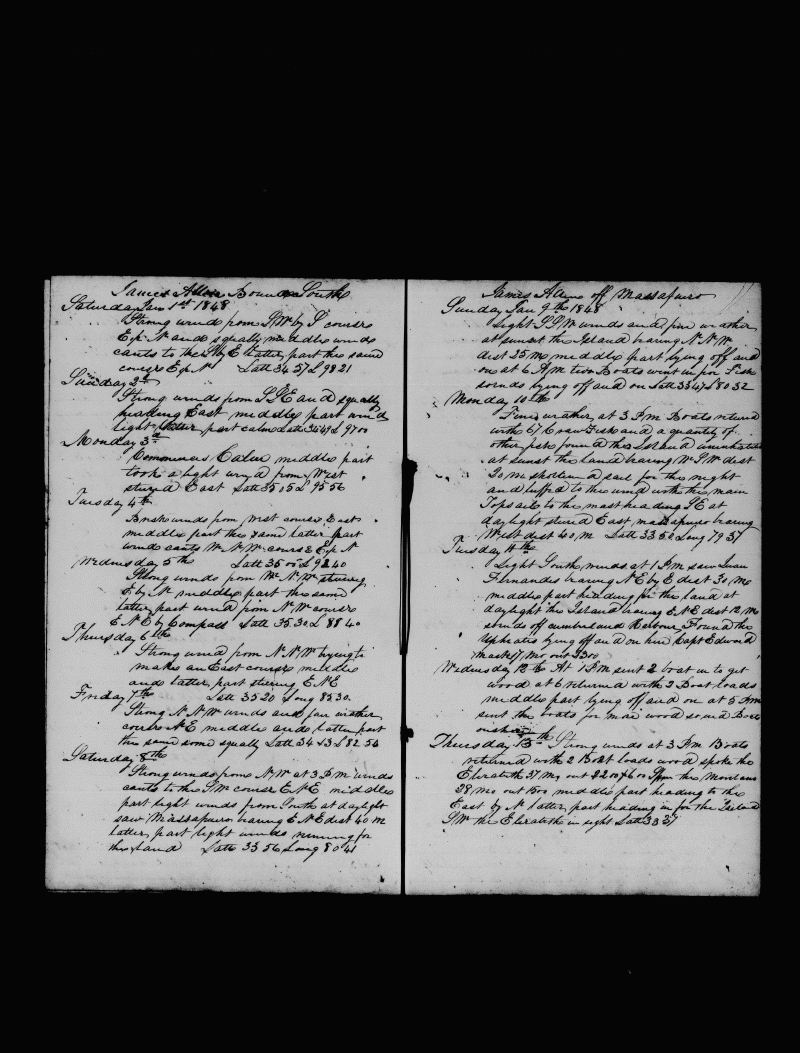 James Allen Bound South
Saturday Jan 1st 1848
Strong wind from SW by S course
E by N and squally middle winds
cants to the S by E latter part the same
course E by N Latt 34 57 L 98 21
Sunday 2d
Strong winds from SSE and squally
heading East middle part wind
light latter part calm Latt 34 47 L 97 00
Monday 3d
Commences Calm middle part
took a light wind from West
steerd East Latt 35 05 L 95 56
Tuesday 4th
Brisk winds from West course East
middle part the same latter part
wind cants W N W course E by N
Wednesday 5th Latt 35 00 L 92 40
Strong winds from W N W steering
E by N middle part the same
latter part wind from N W course
E N E by Compass Latt 35 30 L 88 40
Thursday 6th
Strong wind from N N W trying to
make an East course middle
and latter part steering E N E
Friday 7th Latt 35 20 Long 85 30
Strong N N W winds and fair weather
course N E middle and latter part
the same some squally Latt 34 13 L 82 54
Saturday 8th
Strong winds from N W at 3 P m winds
cants to the S W course E N E middle
part light winds from South at daylight
saw Massafuero bearing E N E dist 40 m
latter part light winds running for
the Land Latt 33 56 Long 80 41
James Allen off Massafuero
Sunday Jan 9th 1848
Light S S W winds and fine weather
at sunset the Island bearing N N W
dist 25 m middle part lying off and
on at 6 A m two Boats went in for Fish
sounds lying off and on Latt 33 47 L 80 32
Monday 10th
Fine weather at 3 P m Boats returned
with 67 Fish and a quantity of
other fish found the Island uninhabited
at sunset the land bearing W S W dist
20 m shortened sail for the night
and luffed to the wind with the main
Topsail to the mast heading S E at
daylight steerd East massafuero bearing
West dist 40 m Latt 33 50 Long 79 37
Tuesday 11th
Light South winds at 1 P m saw Juan
Fernandes bearing N E by E dist 30 m
middle part heading for the land at
daylight the Island bearing E N E dist 12 m
stands off cumberland Harbour Found the
lying off and on here Capt Edward
17 mo out 2300
Wednesday 12th At 1 P m sent 2 boat in to get
wood at 6 returned with 2 Boat loads
middle part lying off and on at 5 A m
sent the boats for more wood sound Boats
onshore
Thursday 13th Strong winds at 3 P m Boats
returned with 2 Boat loads wood spoke the
Elizabeth 27 mo out 2200 600 Spm the
28 mo out 1500 middle part heading to the
East by N latter part heading in for the Island
S W the Elizabeth in sight Latt 33 37